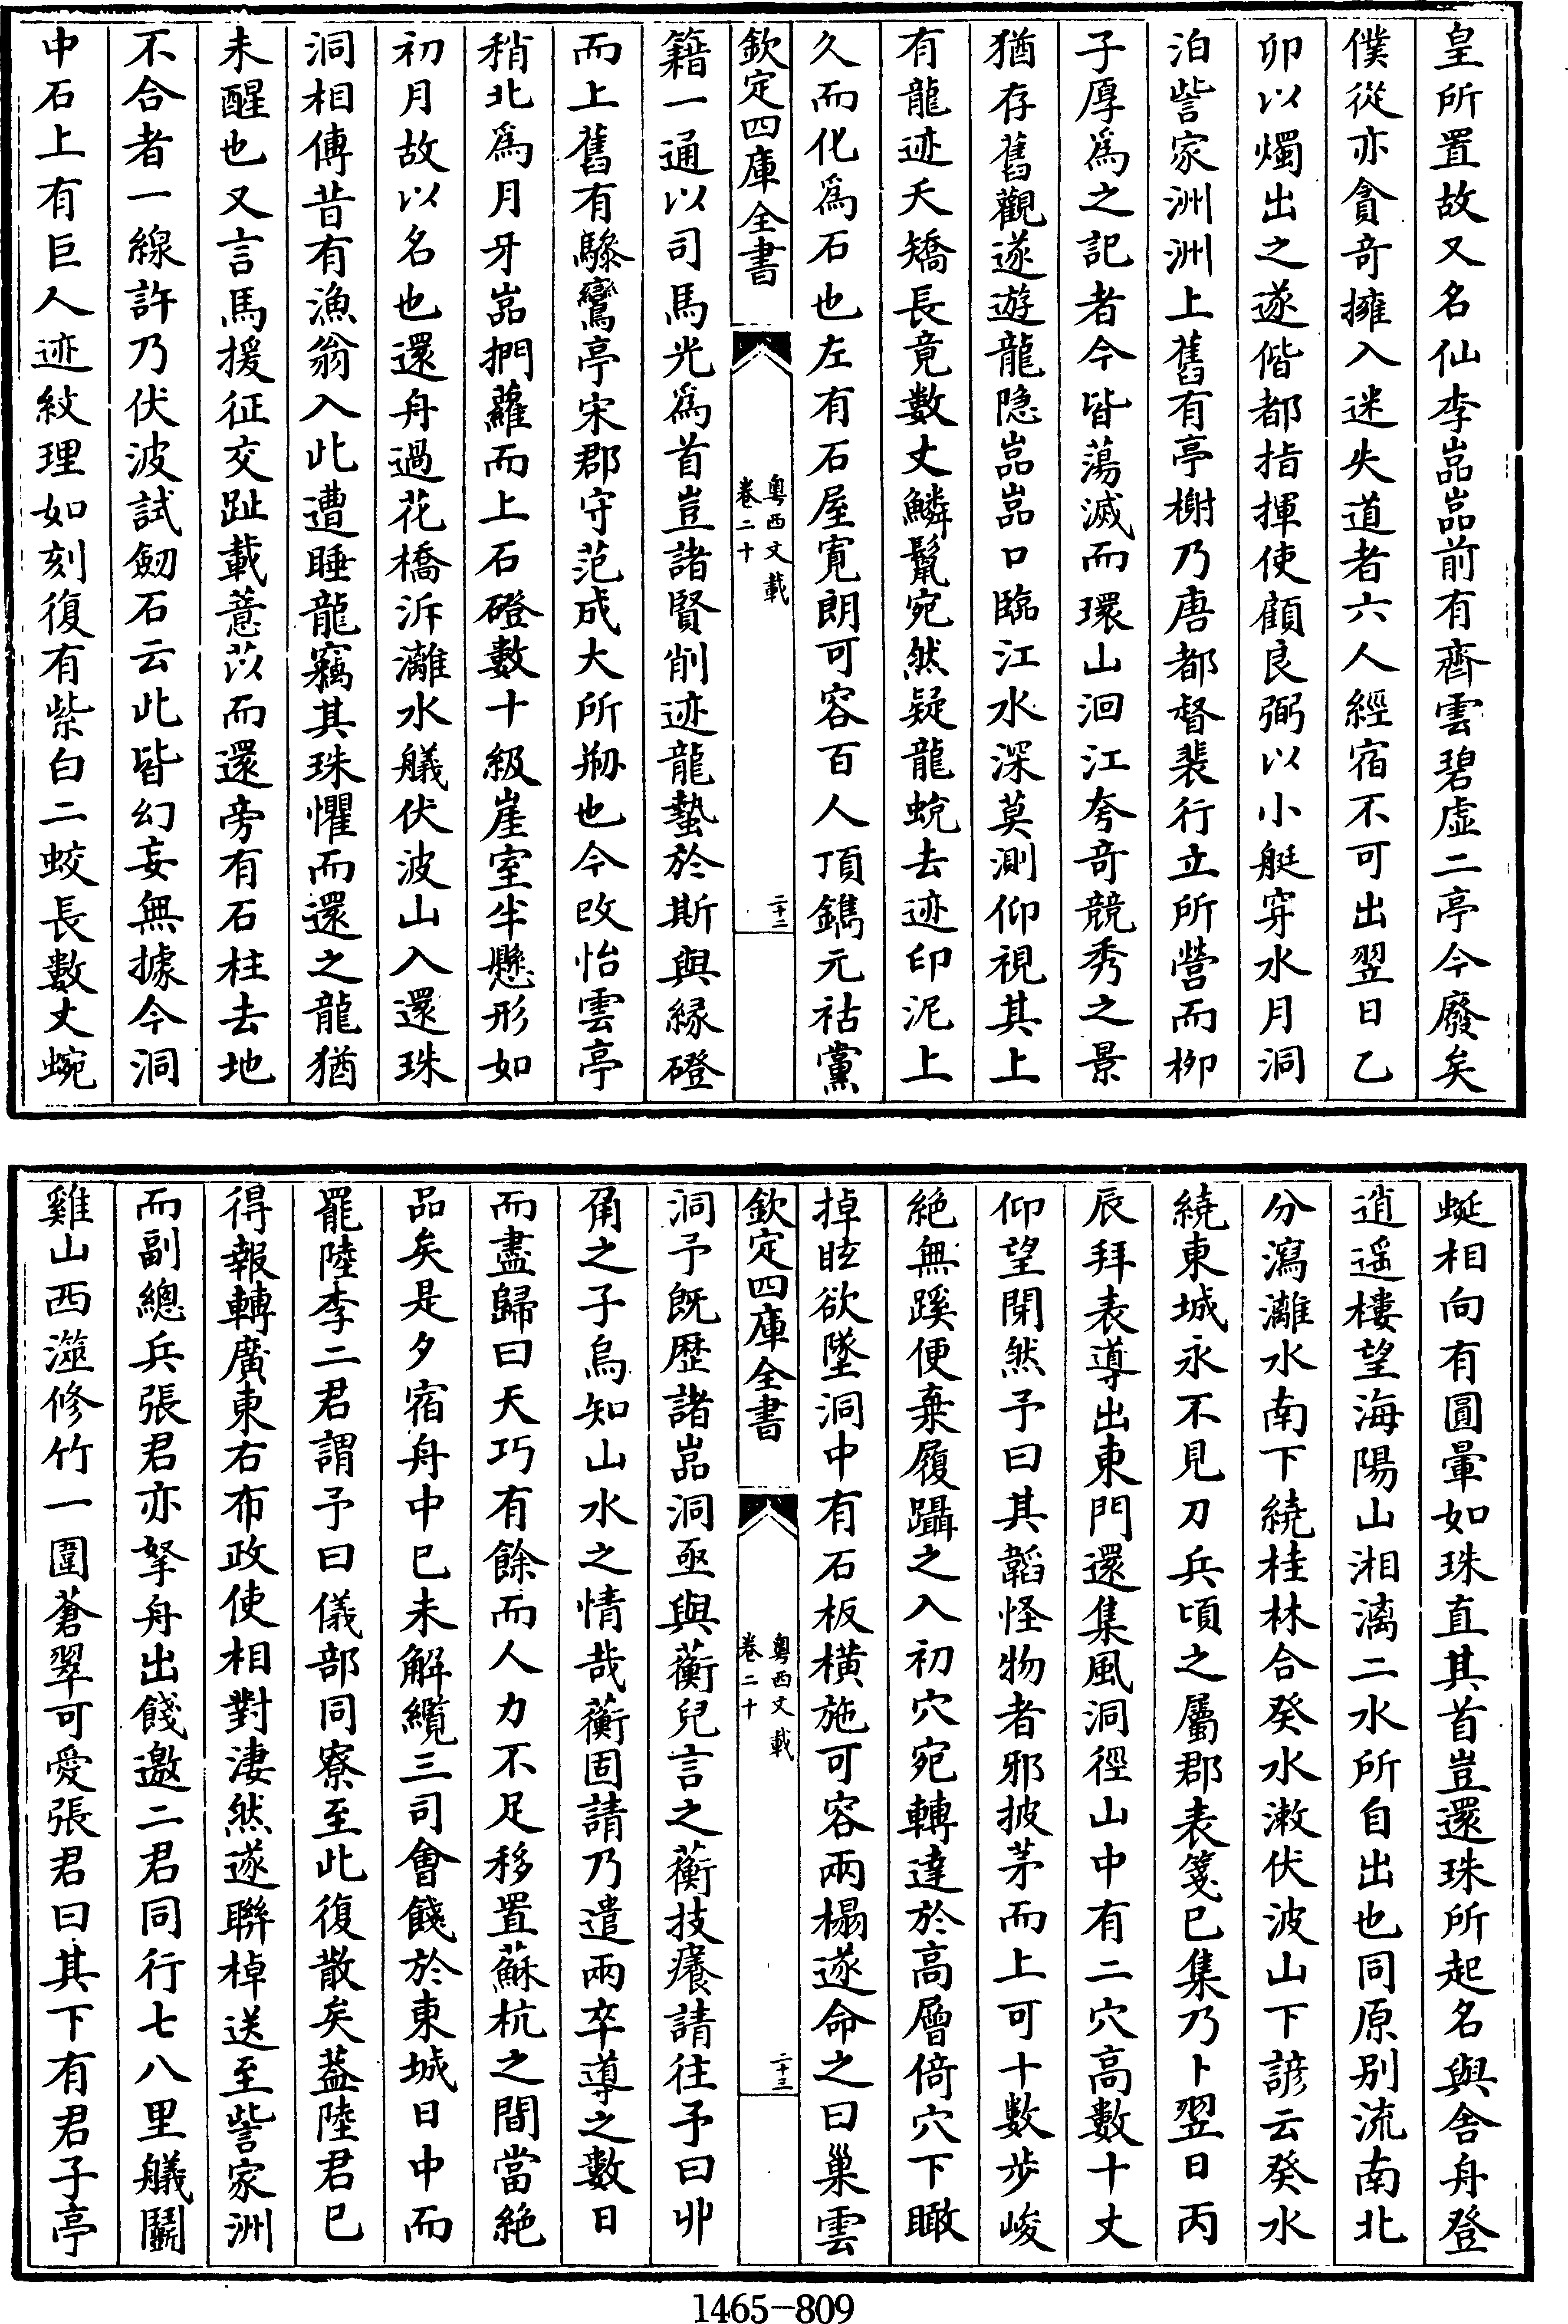 皇所置故又名仙李嵓嵓前有齊雲碧虛二亭今廢矣
僕從亦貪竒擁入迷失道者六人經宿不可出翌日乙
卯以燭出之遂偕都指揮使顧良弼以小艇穿水月洞
泊訾家洲洲上舊有亭榭乃唐都督裴行立所營而柳
子厚爲之記者今皆蕩滅而環山洄江夸竒競秀之景
猶存舊觀遂遊龍隠嵓嵓口臨江水深莫測仰視其上
有龍迹夭矯長竟數丈鱗鬣宛然疑龍蛻去迹印泥上
久而化爲石也左有石屋寛朗可容百人頂鐫元祐黨
欽定四庫全書
粵西文載
卷二十
二十二
籍一通以司馬光爲首豈諸賢削迹龍蟄於斯與縁磴
而上舊有驂鸞亭宋郡守范成大所刱也今改怡雲亭
稍北爲月牙嵓捫蘿而上石磴數十級崖室半懸形如
初月故以名也還舟過花橋泝灕水艤伏波山入還珠
洞相傳昔有漁翁入此遭睡龍竊其珠懼而還之龍猶
未醒也又言馬援征交趾載薏苡而還旁有石柱去地
不合者一線許乃伏波試劒石云此皆幻妄無據今洞
中石上有巨人迹紋理如刻復有紫白二蛟長數丈蜿
蜒相向有圓暈如珠直其首豈還珠所起名與舍舟登
逍遥樓望海陽山湘漓二水所自出也同原别流南北
分瀉灕水南下繞桂林合癸水漱伏波山下諺云癸水
繞東城永不見刀兵頃之屬郡表箋已集乃卜翌日丙
辰拜表導出東門還集風洞徑山中有二穴高數十丈
仰望閉然予曰其韜怪物者邪披茅而上可十數步峻
絶無蹊便棄履躡之入初穴宛轉達於高層倚穴下瞰
掉眩欲墜洞中有石板橫施可容兩榻遂命之曰巢雲
欽定四庫全書
粵西文載
卷二十
二十三
洞予既歴諸嵓洞亟與蘅兒言之蘅技癢請往予曰丱
角之子烏知山水之情哉蘅固請乃遣兩卒導之數日
而盡歸曰天巧有餘而人力不足移置蘇杭之間當絶
品矣是夕宿舟中已未解纜三司會餞於東城日中而
罷陸李二君謂予曰儀部同寮至此復散矣葢陸君已
得報轉廣東右布政使相對淒然遂聨棹送至訾家洲
而副總兵張君亦拏舟出餞邀二君同行七八里艤鬭
雞山西澨修竹一圍蒼翠可愛張君曰其下有君子亭
1465-809